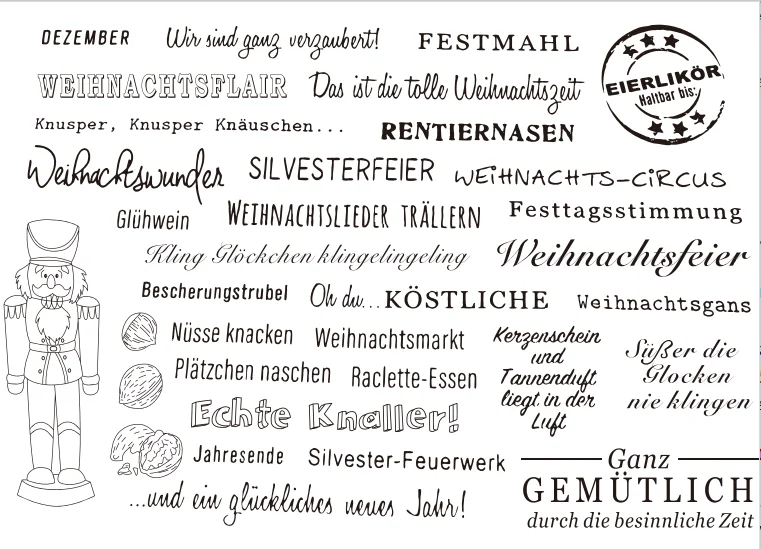 DEZEMBER
Wir sind ganz verzaubert!
FESTMAHL
WEIHNACHTSFLAIR
Das ist die tolle Weihnachtszeit
EIERLIKÖR
Haltbar bis:
Knusper, Knusper Knäuschen...
RENTIERNASEN
Weihnachtswunder
SILVESTERFEIER
WEiHNACHTS-CiRCUS
Glühwein
WEIHNACHTSLIEDER TRÄLLERN
Festtagsstimmung
Kling Glöckchen klingelingeling
Weihnachtsfeier
Bescherungstrubel
Oh du... KÖSTLICHE
Weihnachtsgans
Nüsse knacken
Weihnachtsmarkt
Kerzenschein
und
Tannenduft
liegt in der
Luft
Süßer die
Glocken
nie klingen
Plätzchen naschen
Raclette-Essen
Echte Knaller!
Jahresende
Silvester-Feuerwerk
Ganz
GEMÜTLICH
durch die besinnliche Zeit
...und ein glückliches neues Jahr!